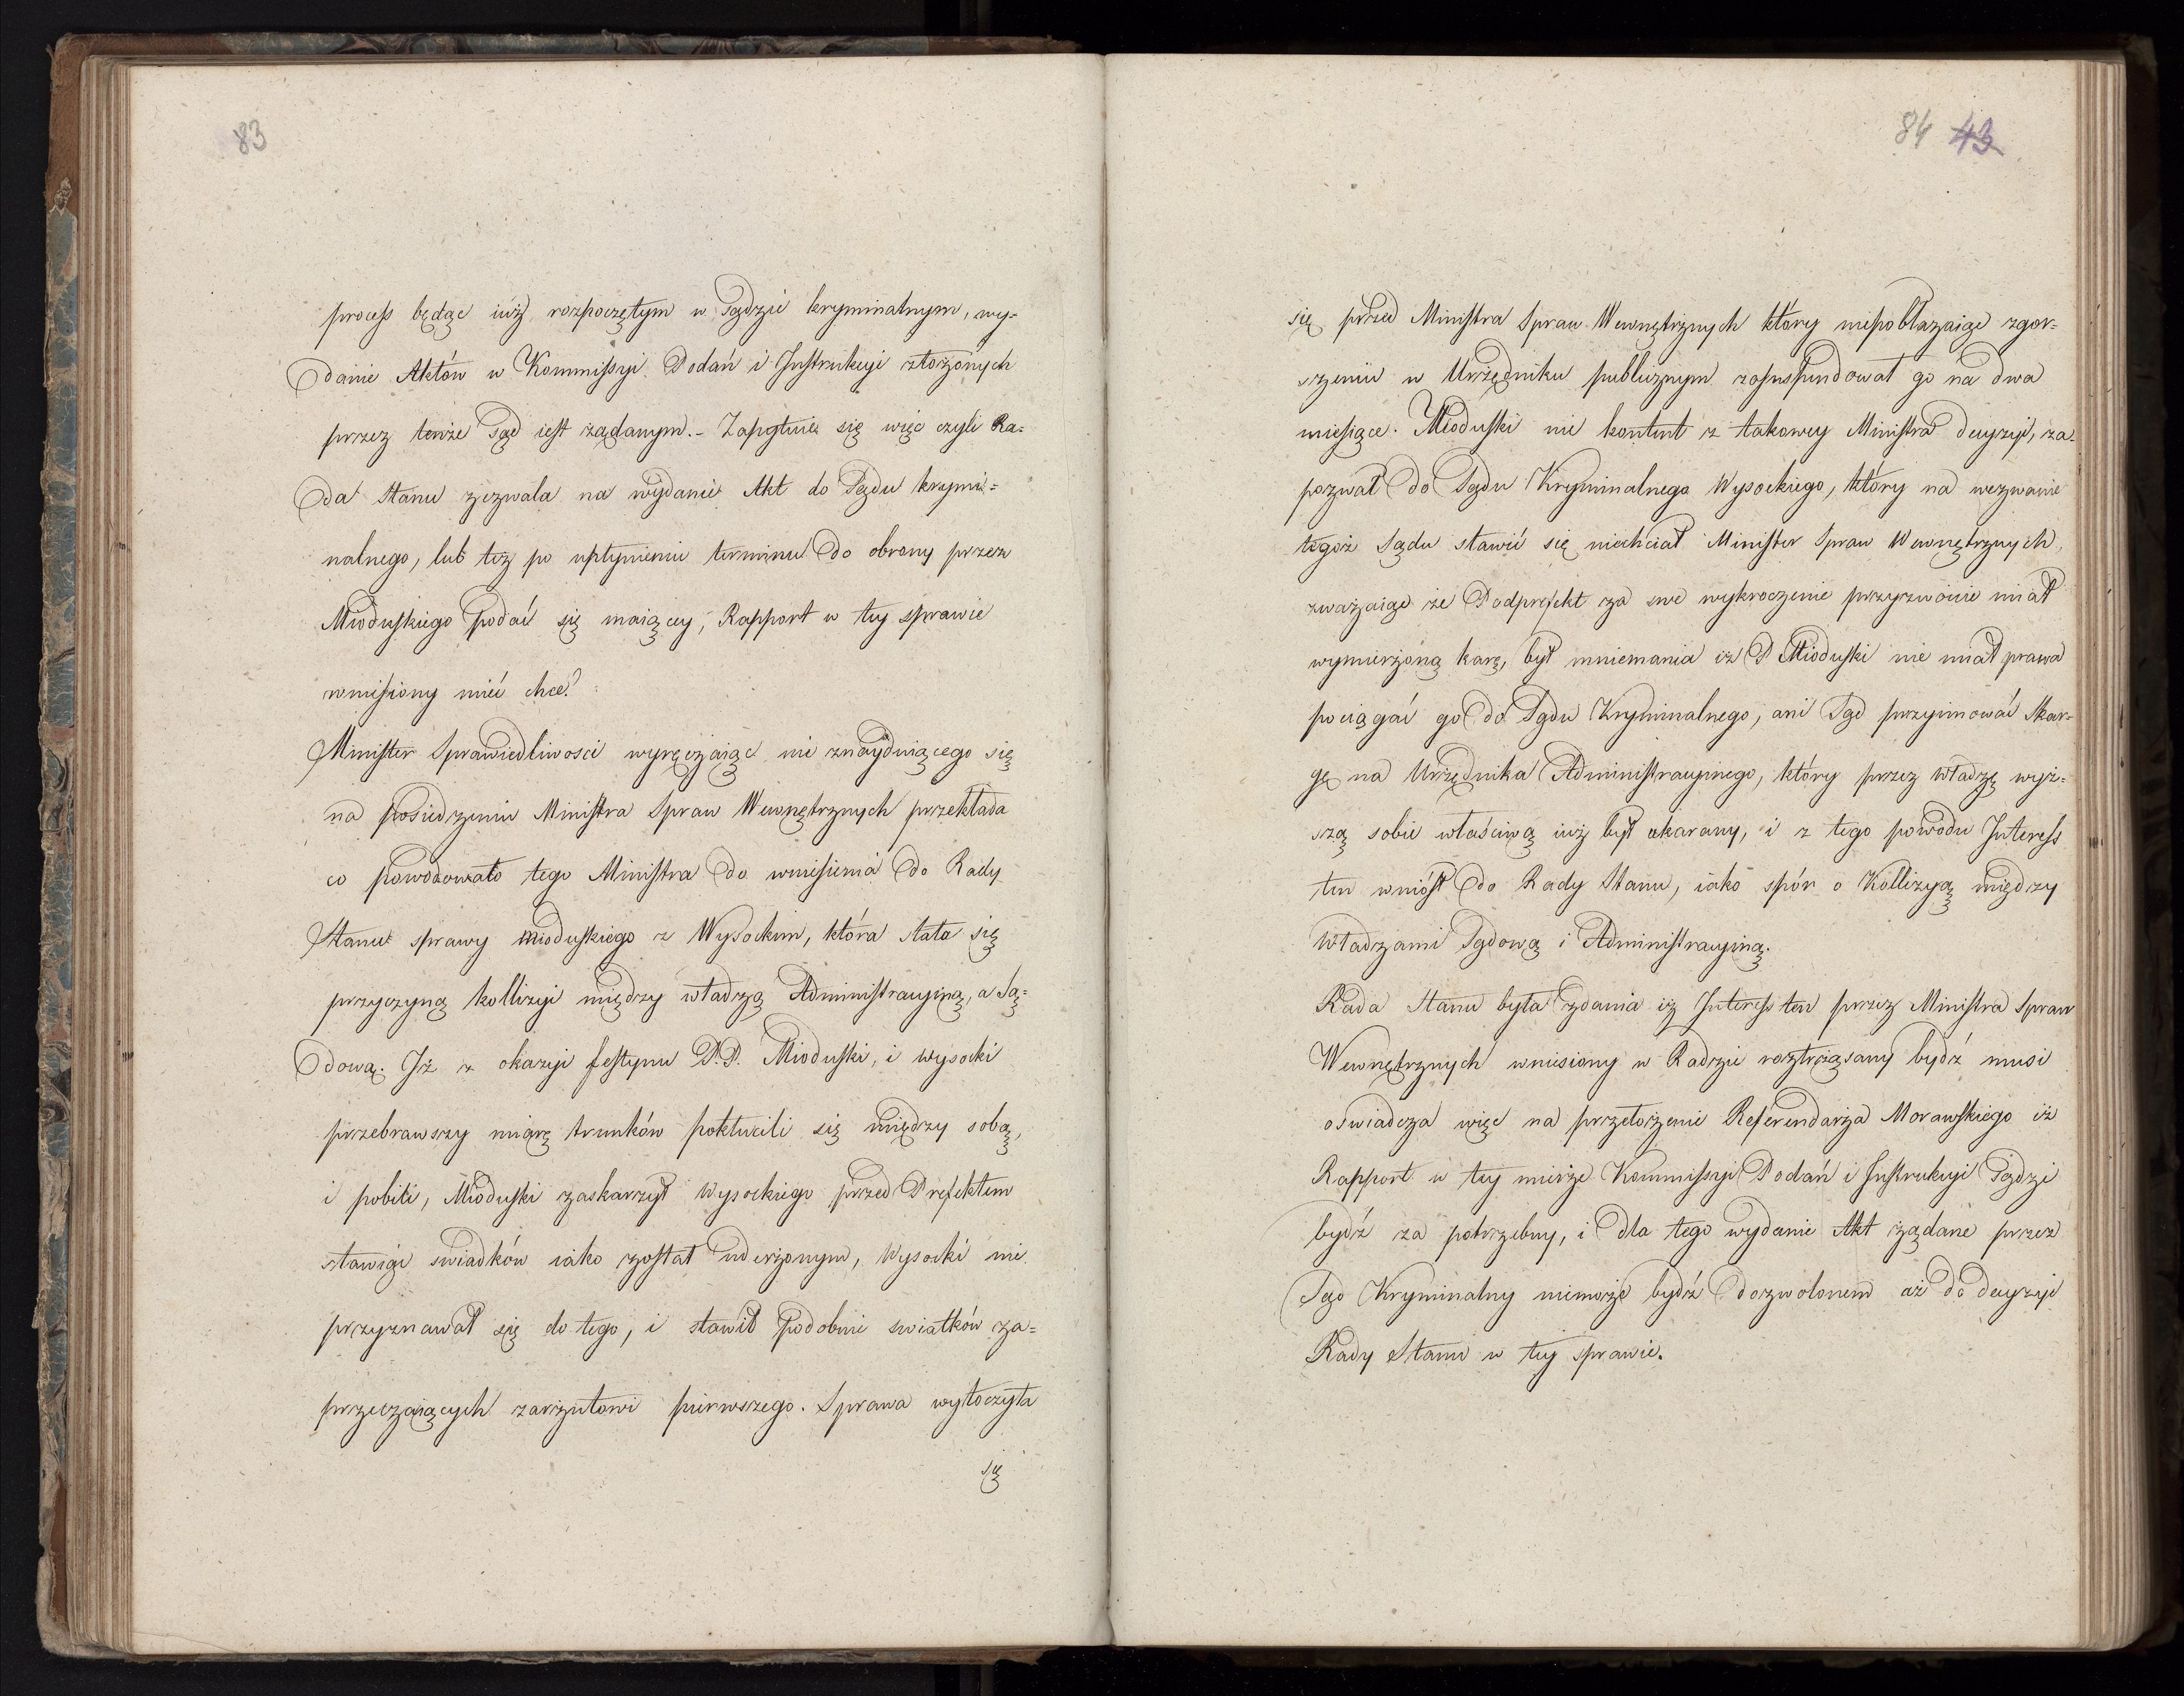 83
process będąc iuż rozpoczętym w Sądzie kryminalnym, wy-
danie Aktów w Kommissyi Podań i Instrukcyi złożonych
przez tenże Sąd iest żądanym. - Zapytuie się więc czyli Ra=
da Stanu zezwala na wydanie Akt do Sądu krymi=
nalnego, lub też po upłynieniu terminu do obrony przez
Mioduskiego podać się maiącey, Rapport w tey sprawie
wniesiony mieć chce?
Minister Sprawiedliwosci wyręczaiąc nie znayduiącego się
na posiedzeniu Ministra Spraw Wewnętrznych przekłada
co powodowało tego Ministra do wniesienia do Rady
Stanu sprawy Mioduskiego z Wysockim, która stała się
przyczyną kollizyi między władzą Administracyiną, a Są=
dową. Iż z okazyi festynu P.P. Mioduski, i Wysocki
przebrawszy miarę trunków pokłucili się między sobą,
i pobili, Mioduski zaskarżył Wysockiego przed Prefektem
stawiąc swiadków iako został uderzonym, Wysocki nie
przyznawał się do tego, i stawił podobnie swiatków za=
przeczaiących zarzutowi pierwszego. Sprawa wytoczyła
się
84 43
się przed Ministra Spraw Wewnętrznych który niepobłażaiąc zgor=
szeniu w Urzędniku publicznym zasuspendował go na dwa
miesiące. Mioduski nie kontent z takowey Ministra decyzyi, za-
pozwał do Sądu Kryminalnego Wysockiego, który na wezwanie
tegoż Sądu stawić się niechciał Minister Spraw Wewnętrznych,
zważaiąc że Podprefekt za swe wykroczenie przyzwoicie miał
wymierzoną karę, był mniemania iż P Mioduski nie miał prawa
pociągać go do Sądu Kryminalnego, ani Sąd przyimować Skar=
gę na Urzędnika Administracyinego, który przez władzę wyż=
szą sobie właściwą iuż był ukarany, i z tego powodu Interess
ten wniósł do Rady Stanu, iako spór o Kollizyą między
Władzami Sądową i Administracyiną.
Rada Stanu była zdania iż Interess ten przez Ministra Spraw
Wewnętrznych wniesiony w Radzie roztrząsany bydź musi
oswiadcza więc na przełożenie Referendarza Morawskiego iż
Rapport w tey mierze Kommissyi Podań i Instrukcyi Sądzi
bydź za potrzebny, i dla tego wydanie Akt żądane przez
Sąd Kryminalny niemoże bydź dozwolonem aż do decyzyi
Rady Stanu w tey sprawie.